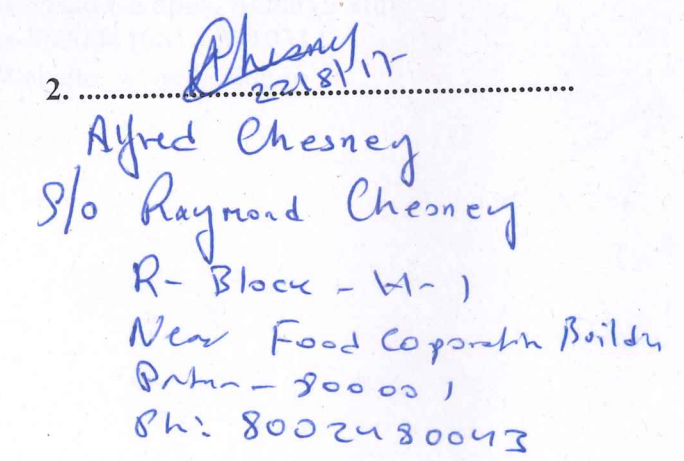 Chesney
22/8/17
2. ........................................................................
Alfred Chesney
S/o Raymond Chesney
R- Block - H- 1
Near Food Coporatin Buildin
Patna - 800001
Ph: 8002480043